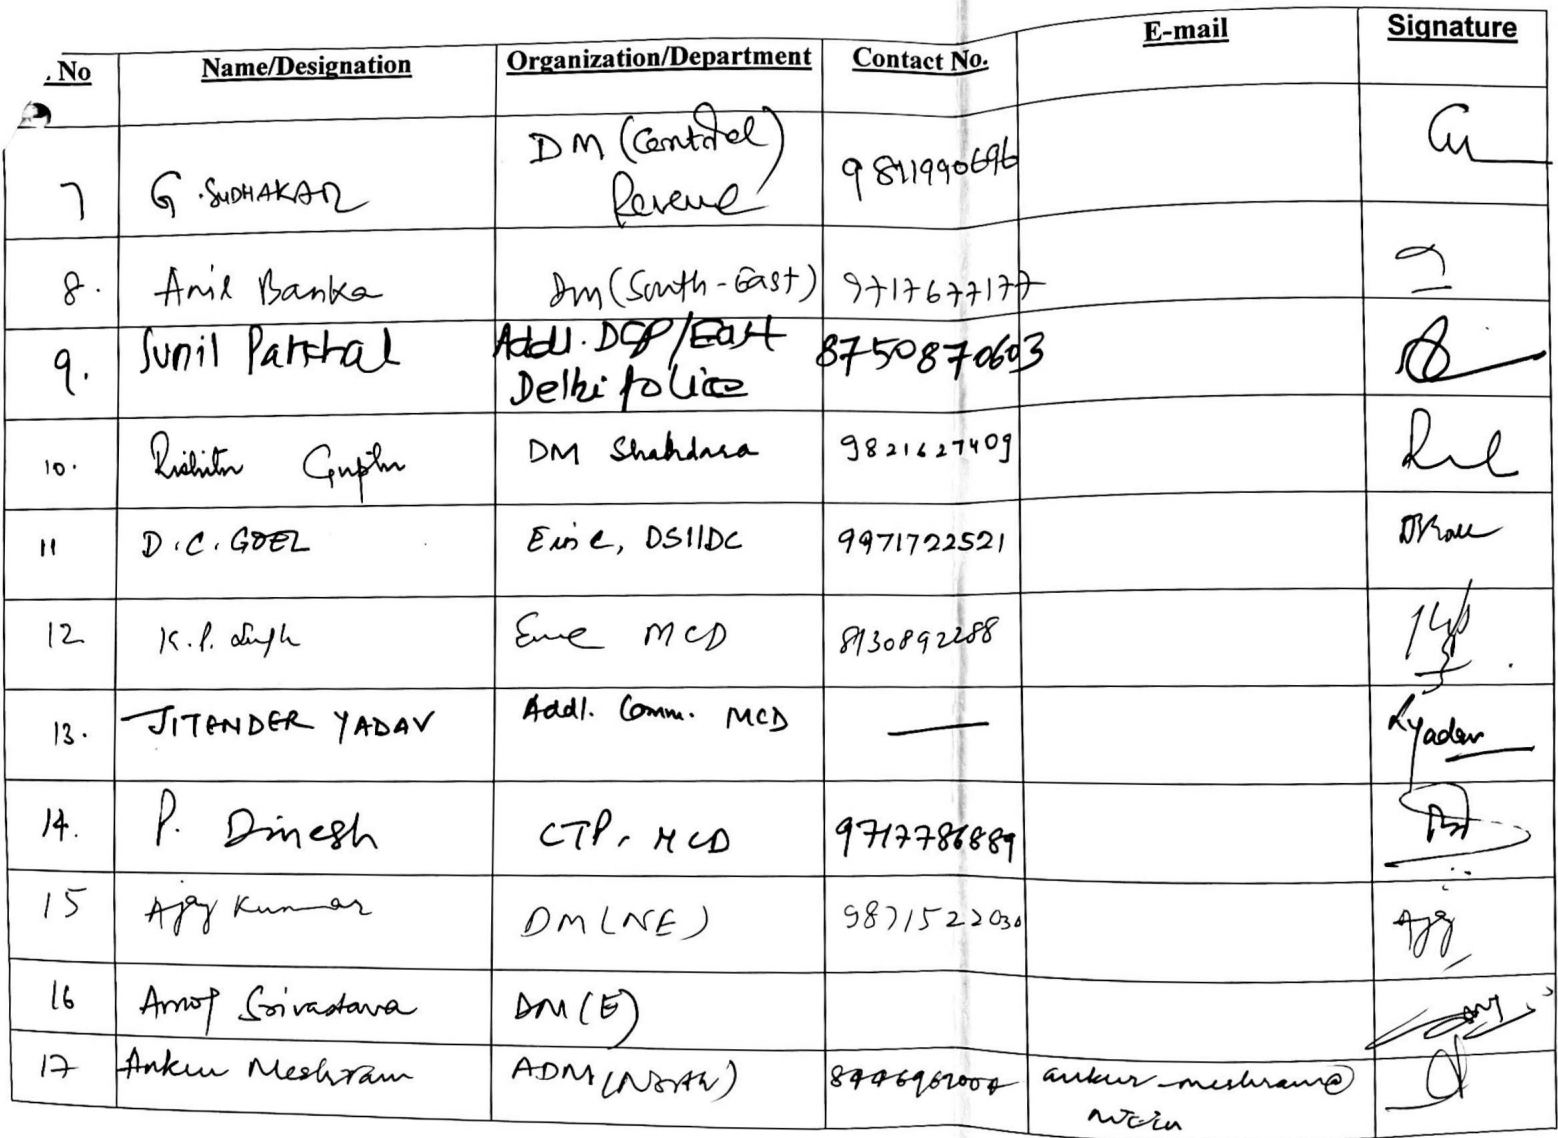 . No Name/Designation Organization/Department Contact No. E-mail Signature
7 G. SUDHAKAR DM (Central) 9811990696
Revenue
8. Anil Banka DM (South-East) 9717677177
9. Sunil Panchal Addl. DCP/East 8750870603
Delhi police
10. Rishita Gupta DM Shahdara 9821627409
11 D.C. GOEL DSIIDC 9971722521
12 K.P. Singh MCD 8130892288
13. JITENDER YADAV Addl. Comm. MCD — Yadav
14. P. Dinesh CTP, MCD 9717786889
15 Ajay Kumar DM (NE) 9871522030 Ajay
16 Amol Srivastava DM (E)
17 Ankur Meshram ADM (North) ankur_meshram@